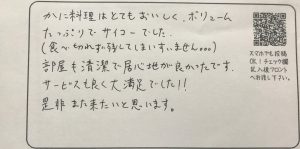 かに料理はとてもおいしく、ボリューム
たっぷりでサイコーでした。
(食べ切れず残してしまいすいません。。。)
部屋も清潔で居心地が良かったです。
サービスも良く大満足でした!!
是非また来たいと思います。
スマホでも投稿
OK!チェック欄
記入後フロント
へお渡し下さい。